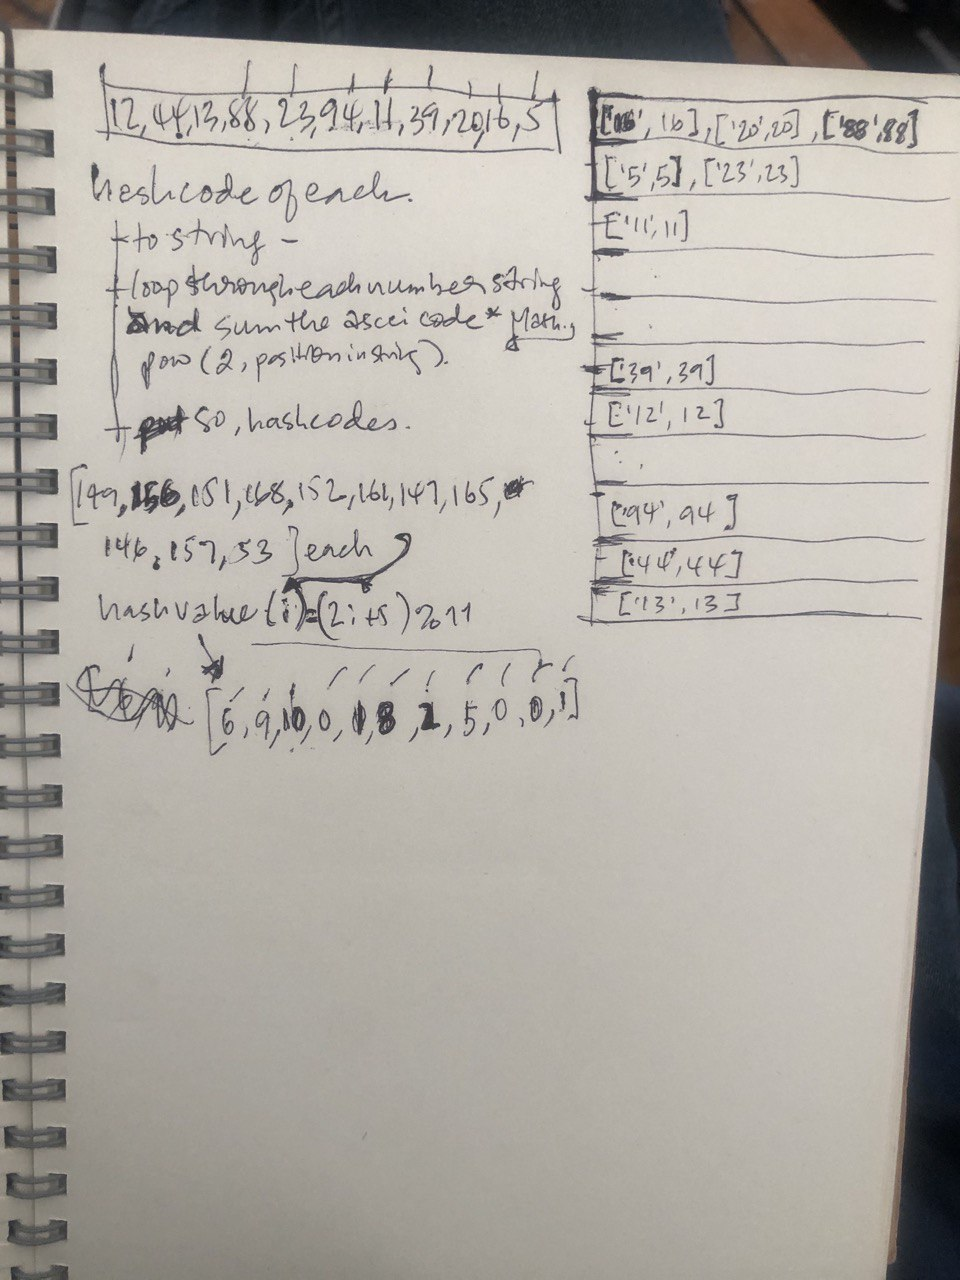 12,44,13,88,23,94,11,39,20,16,5
hashcode of each.
to string -
loop through each number string
and sum the ascci code * Math.
pow (2, position in string).
so, hashcodes.
[149, 156, 151, 168, 152, 161, 147, 165,
146, 157, 53 ] each
hash value (i) = (2i+5) % 11
[6, 9, 10, 0, 1, 8, 2, 5, 0, 0, 1]
['16', 16], ['20', 20], ['88', 88]
['5', 5], ['23', 23]
['11', 11]
['39', 39]
['12', 12]
['94', 94]
['44', 44]
['13', 13]